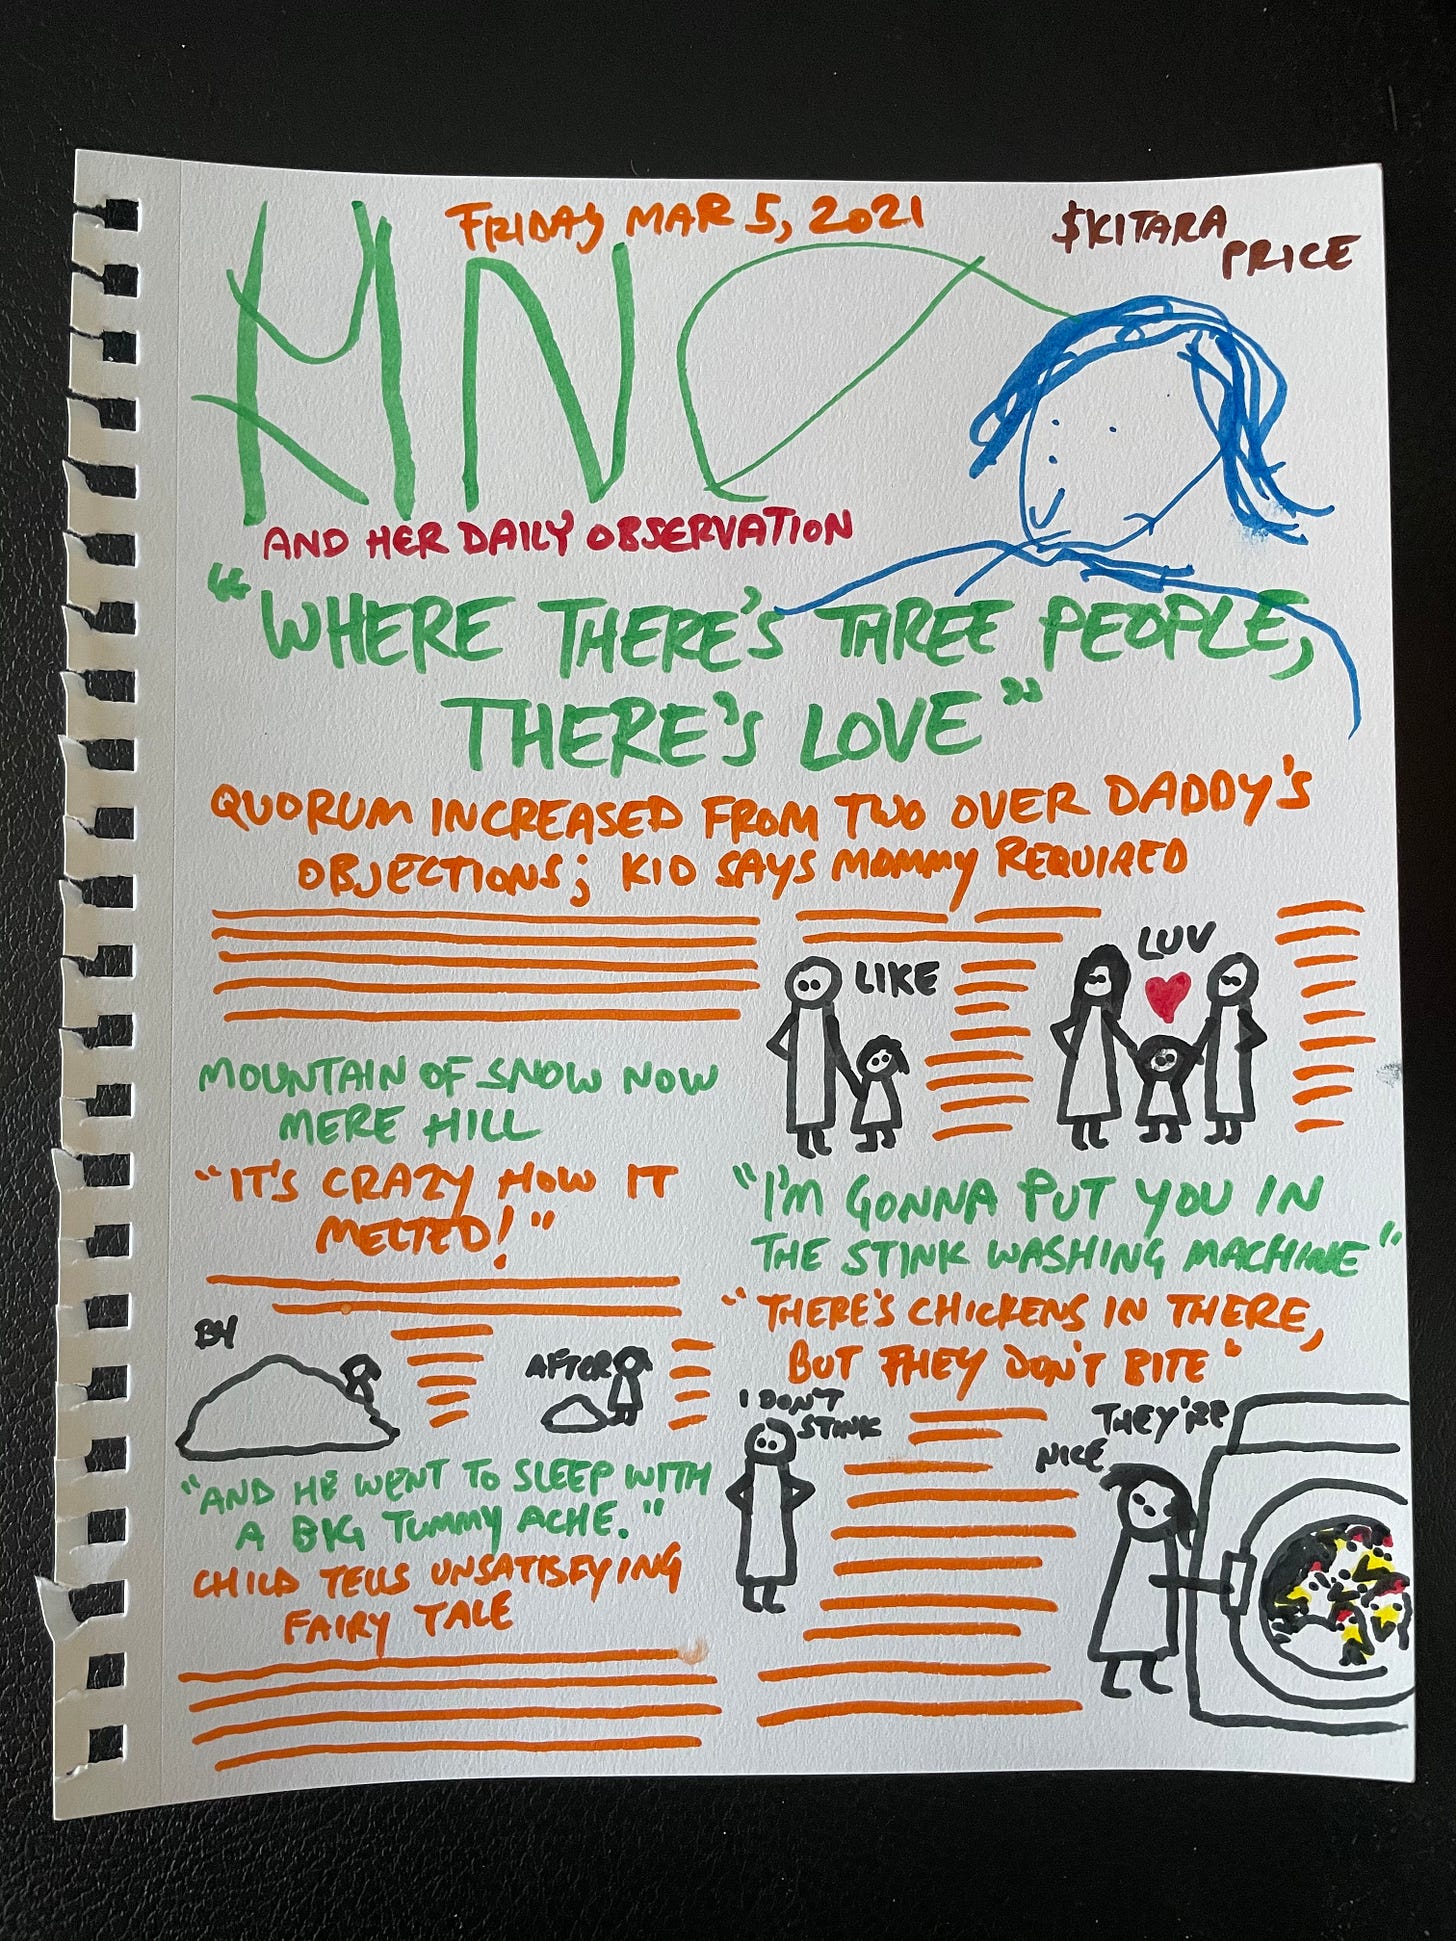 FRIDAY MAR 5, 2021
$KITARA
PRICE
AND HER DAILY OBSERVATION
"WHERE THERE'S THREE PEOPLE,
THERE'S LOVE"
QUORUM INCREASED FROM TWO OVER DADDY'S
OBJECTIONS; KID SAYS MOMMY REQUIRED
LIKE
LUV
MOUNTAIN OF SNOW NOW
MERE HILL
"IT'S CRAZY HOW IT
MELTED!"
B4
AFTER
"AND HE WENT TO SLEEP WITH
A BIG TUMMY ACHE."
CHILD TELLS UNSATISFYING
FAIRY TALE
"I'M GONNA PUT YOU IN
THE STINK WASHING MACHINE"
"THERE'S CHICKENS IN THERE,
BUT THEY DON'T BITE"
I DON'T
STINK
THEY'RE
NICE